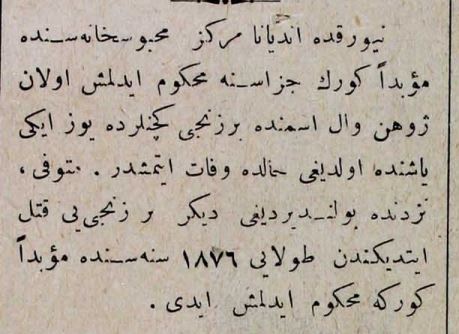 نیورقده اندیانا مركز محبوسخانه‌سنده
مؤبداً كورك جزاسنه محكوم ایدلمش اولان
ژوهن وال اسمنده برزنجی كچنلرده یوز ایكی
یاشنده اولدیغی حالده وفات ایتمشدر . متوفی ،
نزدنده بولندیردیغی دیكر بر زنجی‌یی قتل
ایتدیكندن طولایی ١٨٧٦ سنه‌سنده مؤبداً
كوركه محكوم ایدلمش ایدی .